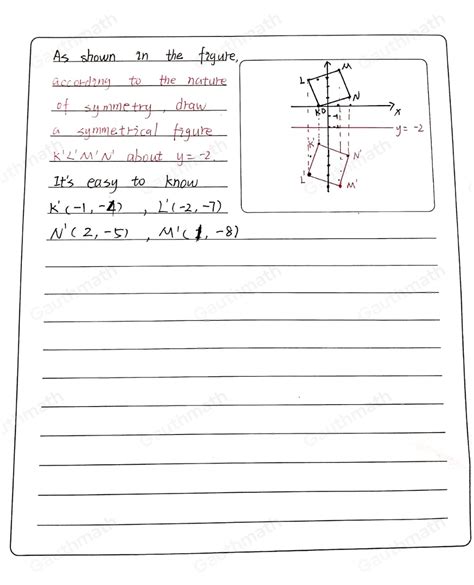 As shown in the figure,
according to the nature
of symmetry, draw
a symmetrical figure
K'L'M'N' about y=-2.
It's easy to know
K'(-1, -4) , L'(-2, -7)
N'(2, -5) , M'(1, -8)
M
L
N
K O
x
y=-2
K'
N'
L'
M'
Gauthmath